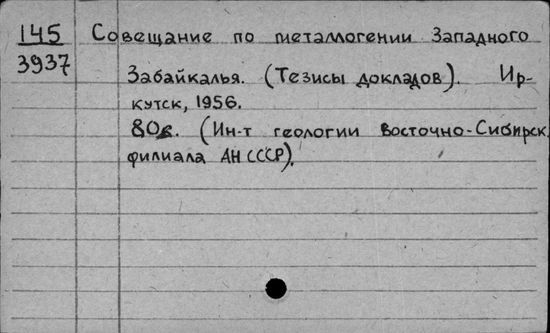 145 Совещание по металлогении Западного
3937
Забайкалья. (Тезисы докладов). Ир-
кутск, 1956.
80с. (Ин-т геологии Восточно-Сибирск.
филиала АН СССР).